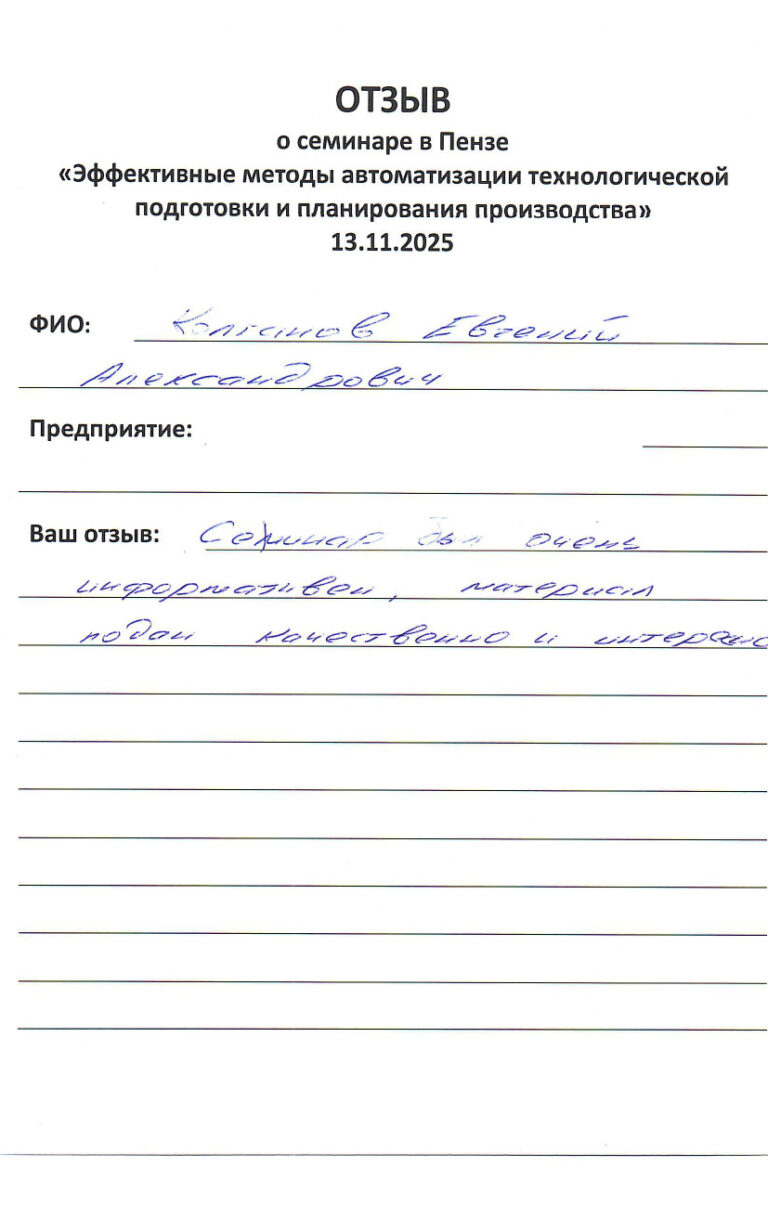 ОТЗЫВ
о семинаре в Пензе
«Эффективные методы автоматизации технологической
подготовки и планирования производства»
13.11.2025
ФИО: Колганов Евгений
Александрович
Предприятие:
Ваш отзыв: Семинар был очень
информативен, материал
подан качественно и интересно